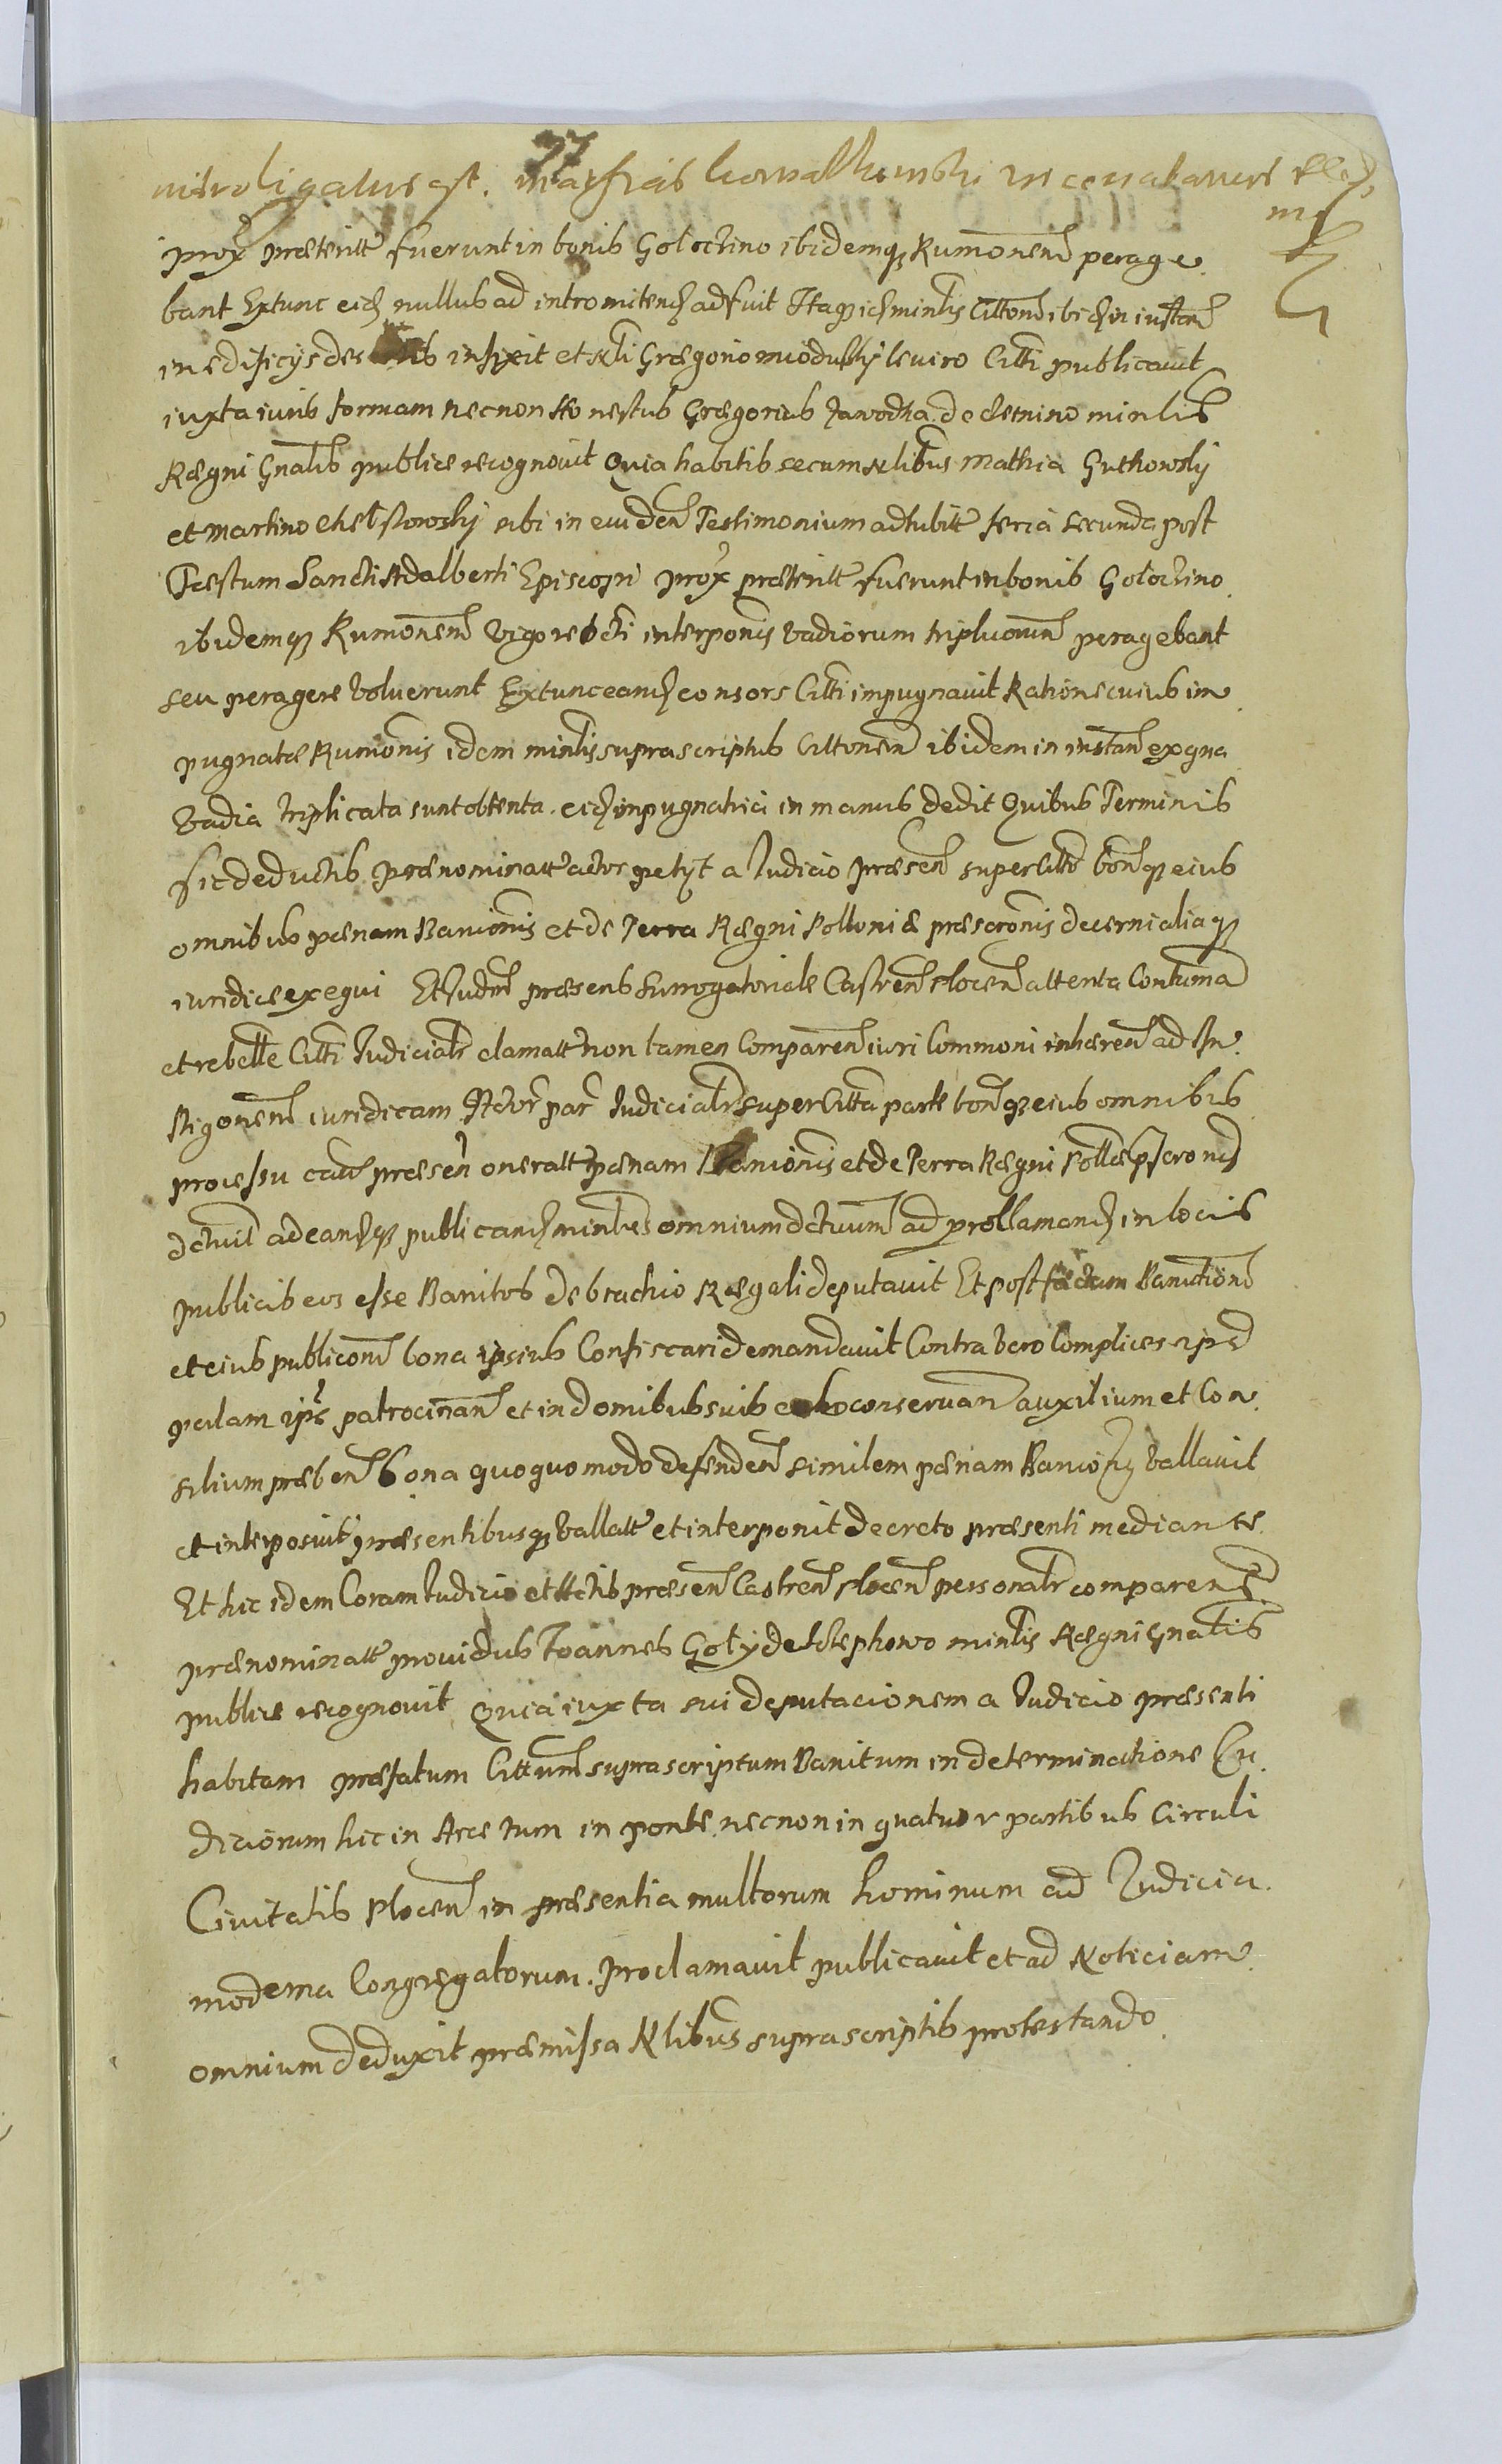 introligatus est.
77
prox praeteritt fuerunt in bonis Golochino ibidemq Rumonem perage
bant Extunc eisd nullus ad intromitend adfuit Itaq id minlis Citton ibid in instan
in edificys des infixit et Nli Graegorio Citti publicavit
iuxta iuris formam necnon Honestus Graegorius Zawodka de minlis
Raegni Gnalis publice recognovit Quia habitis secum Nlibus Mathia Guthowsky
et Martino sibi in euiden Testimonium adhibitt feria secunda post
Faestum Sancti Adalberti Episcopi prox praeteritt fuerunt in bonis Golochino
ibidemq Rumonem vigore dcti interponis vadiorum tripluorum peragebant
seu peragere voluerunt Extunc eand consors Citti impugnavit Ratione cuius im
pugnatae Rumonis idem minlis suprascriptus Cittonem ibidem in instan ex qua
vadia triplicata sunt obtenta eid inpugnatrici in manus dedit Quibus Terminis
sic deductis praenominatt actor petyt a Iudicio praesen super Citto bonq eius
omnibus paenam Banionis et de Terra Raegni Polloniae praescronis decerni aliaq
iuridice exequi Et Iudm praesens Surrogatoriale Castren Plocen attenta Contuma
et rebelle Citti Iudicialr clamatt non tamen Comparen iuri Commoni inhaeren ad In
stigonem iuridicam Actor par Iudicialr super Citta parte bonq eius omnibus
processu caus praesen oneratt paenam Banionis et de Terra Raegni Pollae pscronis
dcrevit ad eandq publicand minles omnium dctuum ad proclamand in locis
publicis eos esse Banitos de brachio Raegali deputavit Et post factam Banitionem
et eius publiconem bona ipsius Confiscari demandavit Contra vero Complices ipsi
patrocinan et in domibus suis conservan auxilium et Con
silium praeben bona quoquomodo defenden similem paenam Banionis vallavit
et interposuit praesentibusq vallatt et interponit decreto praesenti mediante
Et hic idem Coram Iudicio et Actis praesen Castren Plocen personalr comparens
praenominatt providus Ioannes Goly de minlis Raegni Gnalis
publice recognovit Quia iuxta sui deputacionem a Iudicio praesenti
habitam praefatum Cittum suprascriptum Banitum in determinatione Iu
diciorum hic in Arce tum in ponte necnon in quatuor partibus Circuli
Civitatis Plocen in praesentia multorum hominum ad Iudicia
moderna Congregatorum proclamavit publicavit et ad Noticiam
omnium deduxit praemissa Nlibus suprascriptis protestando